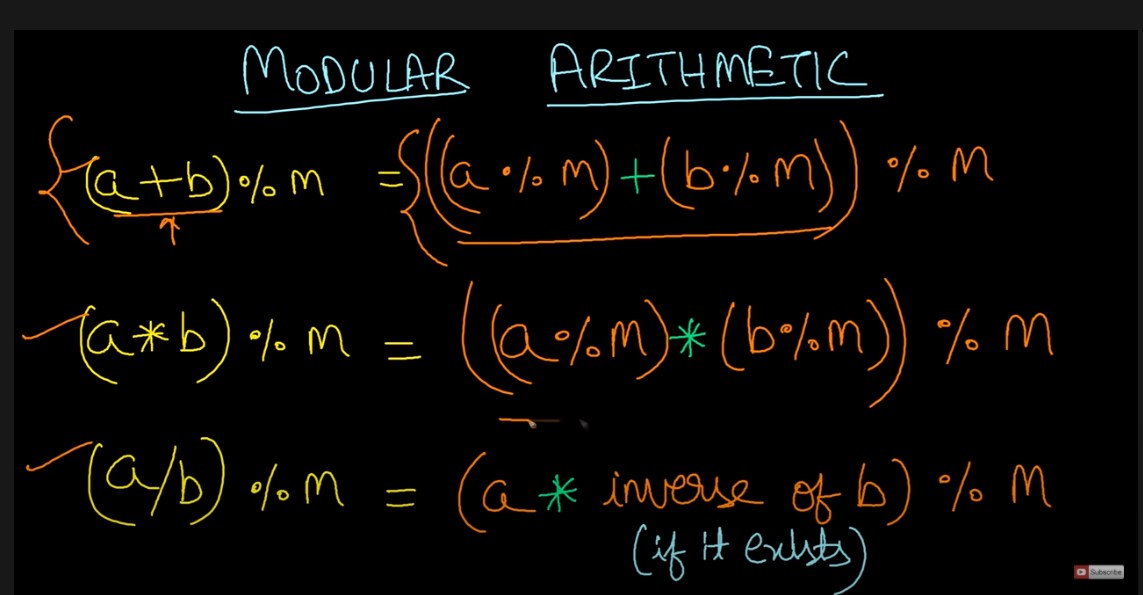 MODULAR ARITHMETIC
(a+b)%M = ((a%M)+(b%M))%M
(a*b)%M = ((a%M)*(b%M))%M
(a/b)%M = (a * inverse of b)%M
(if it exists)
Subscribe